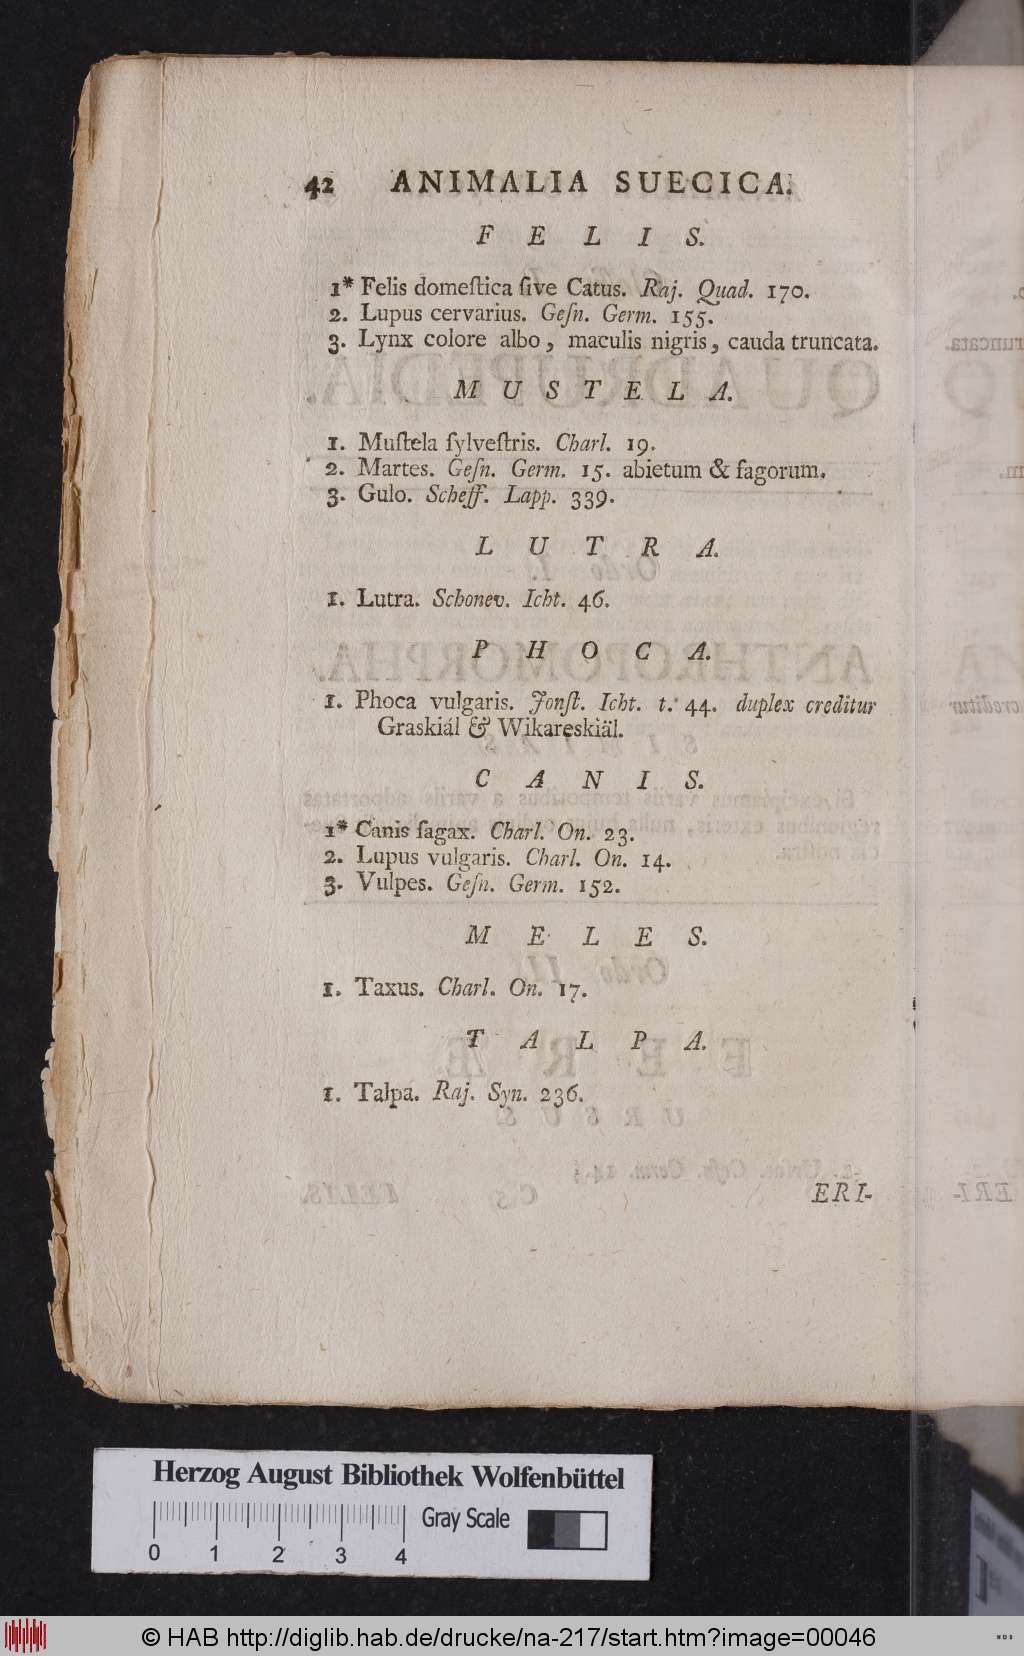 42 ANIMALIA SUECICA.
F E L I S.
1* Felis domeſtica ſive Catus. Raj. Quad. 170.
2. Lupus cervarius. Geſn. Germ. 155.
3. Lynx colore albo, maculis nigris, cauda truncata.
M U S T E L A.
1. Muſtela ſylveſtris. Charl. 19.
2. Martes. Geſn. Germ. 15. abietum & fagorum.
3. Gulo. Scheff. Lapp. 339.
L U T R A.
1. Lutra. Schonev. Icht. 46.
P H O C A.
1. Phoca vulgaris. Jonſt. Icht. t. 44. duplex creditur
Graskiál & Wikareskiäl.
C A N I S.
1* Canis ſagax. Charl. On. 23.
2. Lupus vulgaris. Charl. On. 14.
3. Vulpes. Geſn. Germ. 152.
M E L E S.
1. Taxus. Charl. On. 17.
T A L P A.
1. Talpa. Raj. Syn. 236.
ERI-
Herzog August Bibliothek Wolfenbüttel
Gray Scale
0 1 2 3 4
© HAB http://diglib.hab.de/drucke/na-217/start.htm?image=00046